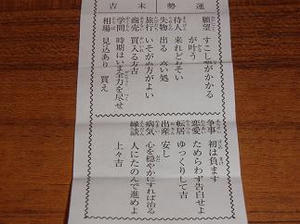 運勢 末吉
願望 すこし がかかる
が叶う
待人 来れどおそい
失物 出る 高い処
旅行 いそがぬ方がよい
商売 買入る方吉
学問 時期はいま全力を尽せ
相場 見込あり 買え
争事 初は負ます
恋愛 ためらわず告白せよ
転居 ゆっくりして吉
出産 安し
病気 心を穏やかにすれば治る
縁談 人にたのんで進めよ
上々吉